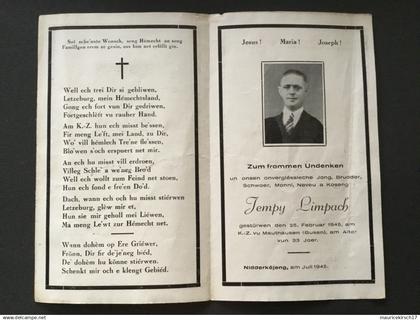 Säi schéinste Wonsch, seng Hémecht an seng
Familljen erem ze gesin, ass him net erfëllt gin.
Well ech trei Dir si gebliwen,
Letzeburg, mein Hémechtsland,
Gong ech fort vun Dir gedriwen,
Fortgeschlëft vu rauher Hand.
Am K.-Z. hun ech misst be'ssen,
Fir meng Le'ft, mei Land, zu Dir,
Wo' vill hémlech Tre'ne fle'ssen,
Blo'wen s'och erspuert net mir.
An ech hu misst vill erdroen,
Villeg Schlé' a we'neg Bro'd
Well ech wollt zum Feind net stoen,
Hun ech fond e fre'en Do'd.
Dach, wann ech och hu misst stiérwen
Letzeburg, gléw mir et,
Hun sie mir geholl mei Liéwen,
Ma meng Le'wt zur Hémecht net.
Wann dohém op Ere Griéwer,
Frönn, Dir fir de'jeneg biéd,
De' dohém hu können stiérwen,
Schenkt mir och e klengt Gebiéd.
Jesus! Maria! Joseph!
Zum frommen Undenken
un onsen onvergiéssleche Jong, Brudder,
Schwoer, Monni, Neveu a Koseng
Jempy Limpach
gesturwen den 25. Februar 1945, am
K.-Z. vu Mauthausen (Gusen), am Alter
vun 23 Joer.
Nidderkéjeng, am Juli 1945.
www.delcampe.net
mauricekirsch17